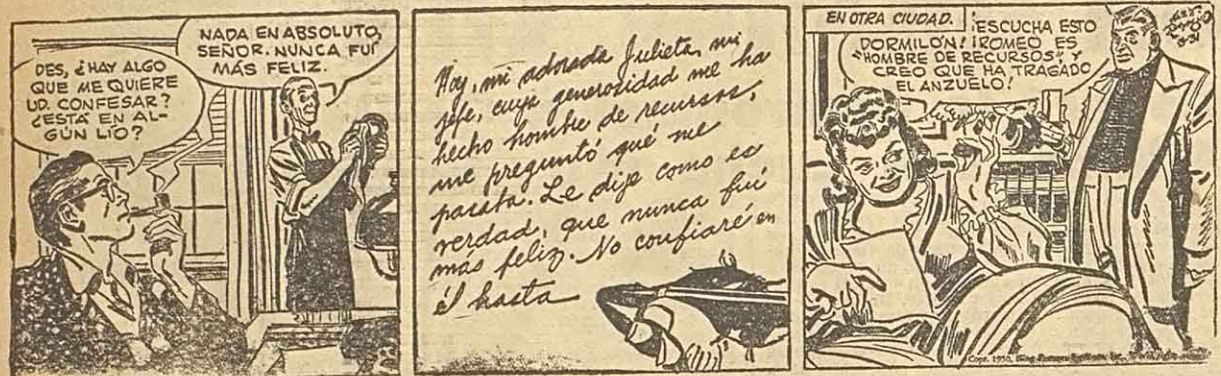 DES, ¿HAY ALGO
QUE ME QUIERE
UD. CONFESAR?
¿ESTÁ EN AL-
GÚN LÍO?
NADA EN ABSOLUTO,
SEÑOR. NUNCA FUÍ
MÁS FELIZ.
Hoy, mi adorada Julieta, mi
jefe, cuya generosidad me ha
hecho hombre de recursos,
me preguntó qué me
pasaba. Le dije como es
verdad, que nunca fuí
más feliz. No confiaré en
él hasta
EN OTRA CIUDAD.
¡ESCUCHA ESTO
DORMILÓN! ¡ROMEO ES
"HOMBRE DE RECURSOS", Y
CREO QUE HA TRAGADO
EL ANZUELO!
8-31
Copr. 1950, King Features Syndicate, Inc.,